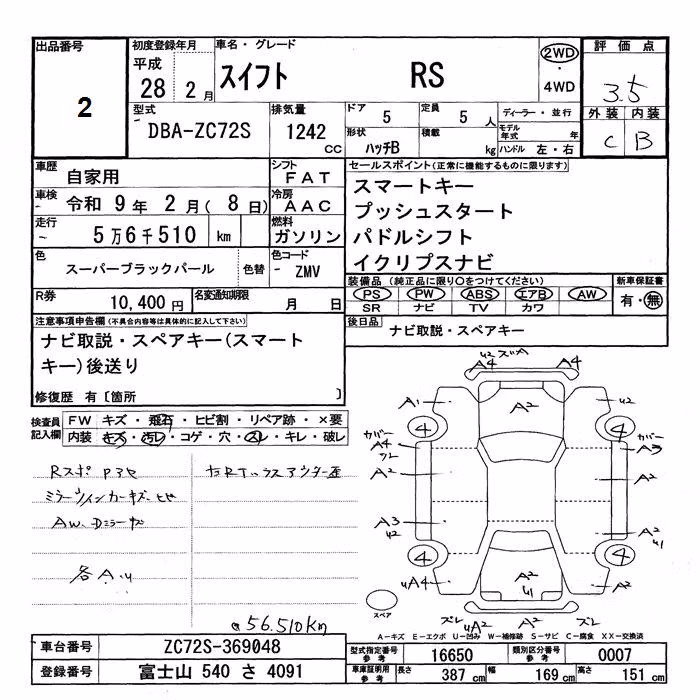 出品番号 初度登録年月 車名・グレード 2WD 評価点
2 平成 28 2月 スイフト RS ・4WD 3.5
型式 排気量 ドア 5 定員 5人 ディーラー・並行 外装 内装
DBA-ZC72S 1242cc 形状 ハッチB 積載 kg モデル年式 年 ハンドル 左・右 C B
車歴 自家用 シフト FAT セールスポイント(正常に機能するものに限ります)
車検 令和 9年 2月(8日) 冷房 AAC スマートキー
プッシュスタート
走行 5万6千510 km 燃料 ガソリン パドルシフト
イクリプスナビ
色 スーパーブラックパール 色替 色コード - ZMV
装備品(純正品に限り○をつけてください) 新車保証書
PS PW ABS エアB AW 有・無
SR ナビ TV カワ
R券 10,400円 名変通知期限 月 日
後日品 ナビ取説・スペアキー
注意事項申告欄(不具合内容等は具体的に記入して下さい)
ナビ取説・スペアキー(スマート
キー)後送り
修復歴 有〔箇所 〕
検査員記入欄 FW キズ・飛石・ヒビ割・リペア跡・×要
内装 キズ・汚レ・コゲ・穴・スレ・キレ・破レ
Rスポ
ミラーウィンカーキズ
AW
各A.U
@56.510km
U2 ズA
A4 A4
A1 A2 U2
4 4
カバー カバー
A4 A3
A2 A2
A3 A2
U2 U1
4 4
UA4 A2 A2
U1
ズレ UA2 ズレ
スペア
A-キズ E-エクボ U-凹み W-補修跡 S-サビ C-腐食 XX-交換済
車台番号 ZC72S-369048 型式指定番号 参考 16650 類別区分番号 参考 0007
登録番号 富士山 540 さ 4091 車庫証明用 参考 長さ 387 cm 幅 169 cm 高さ 151 cm